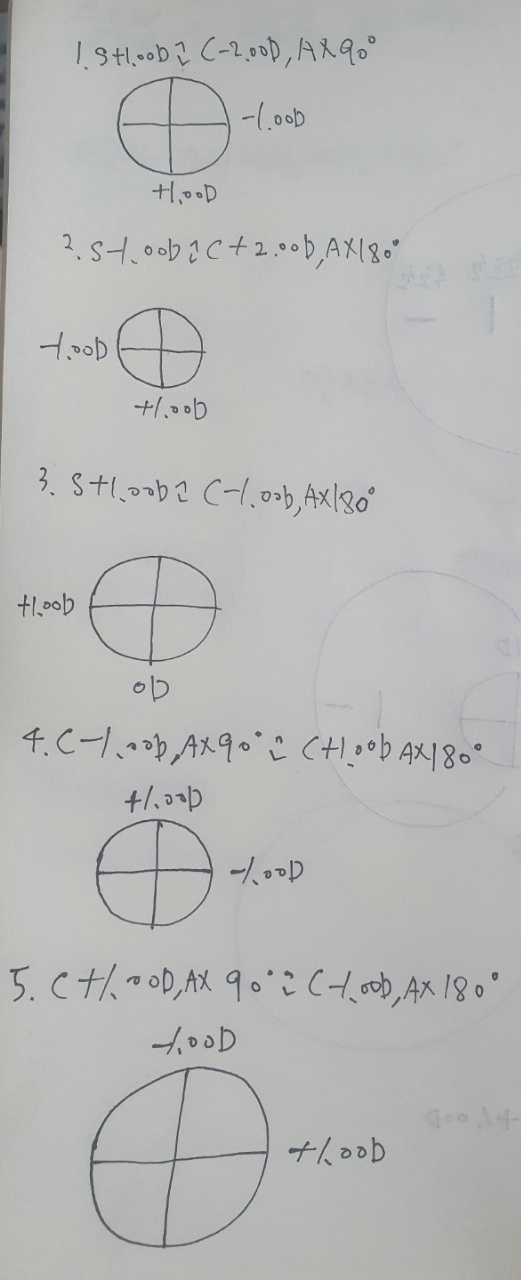 1. S+1.00D ⊃ C-2.00D, AX90°
-1.00D
+1.00D
2. S-1.00D ⊃ C+2.00D, AX180°
-1.00D
+1.00D
3. S+1.00D ⊃ C-1.00D, AX180°
+1.00D
0D
4. C-1.00D, AX90° ⊃ C+1.00D AX180°
+1.00D
-1.00D
5. C+1.00D, AX 90° ⊃ C-1.00D, AX 180°
-1.00D
+1.00D